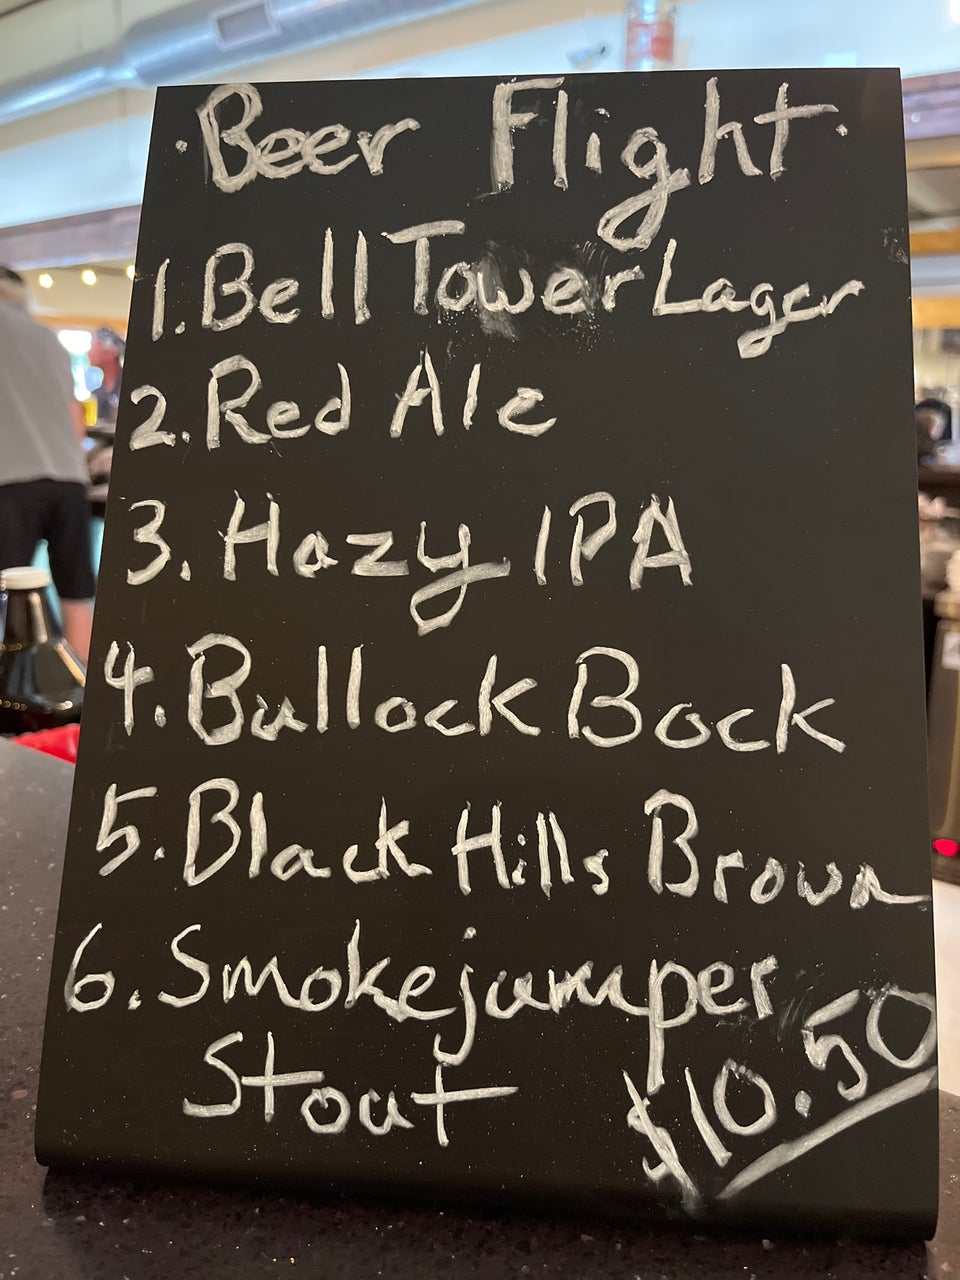 · Beer Flight ·
1. Bell Tower Lager
2. Red Ale
3. Hazy IPA
4. Bullock Bock
5. Black Hills Brown
6. Smokejumper
Stout
$10.50